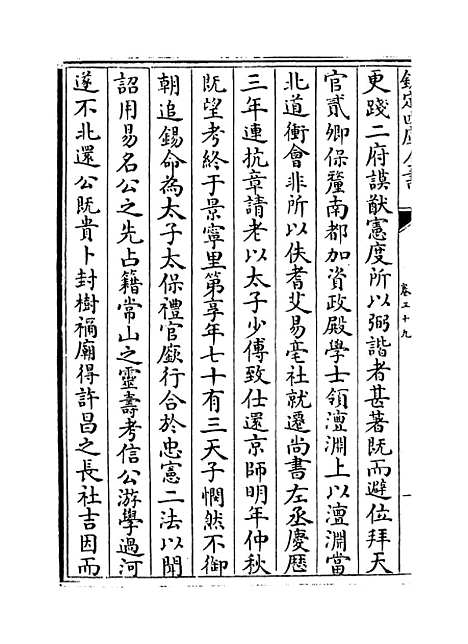 欽定四庫全書
卷五十九
更踐二府謨猷憲度所以弼諧者甚著既而避位拜天
官貳卿保釐南都加資政殿學士領澶淵上以澶淵當
北道衝會非所以佚耆艾易亳社就遷尚書左丞慶厯
三年連抗章請老以太子少傅致仕還京師明年仲秋
既望考終于景寧里第享年七十有三天子憫然不御
朝追錫命為太子太保禮官㢘行合於忠憲二法以聞
詔用易名公之先占籍常山之靈壽考信公游學過河
遂不北還公既貴卜封樹禍廟得許昌之長社吉因而